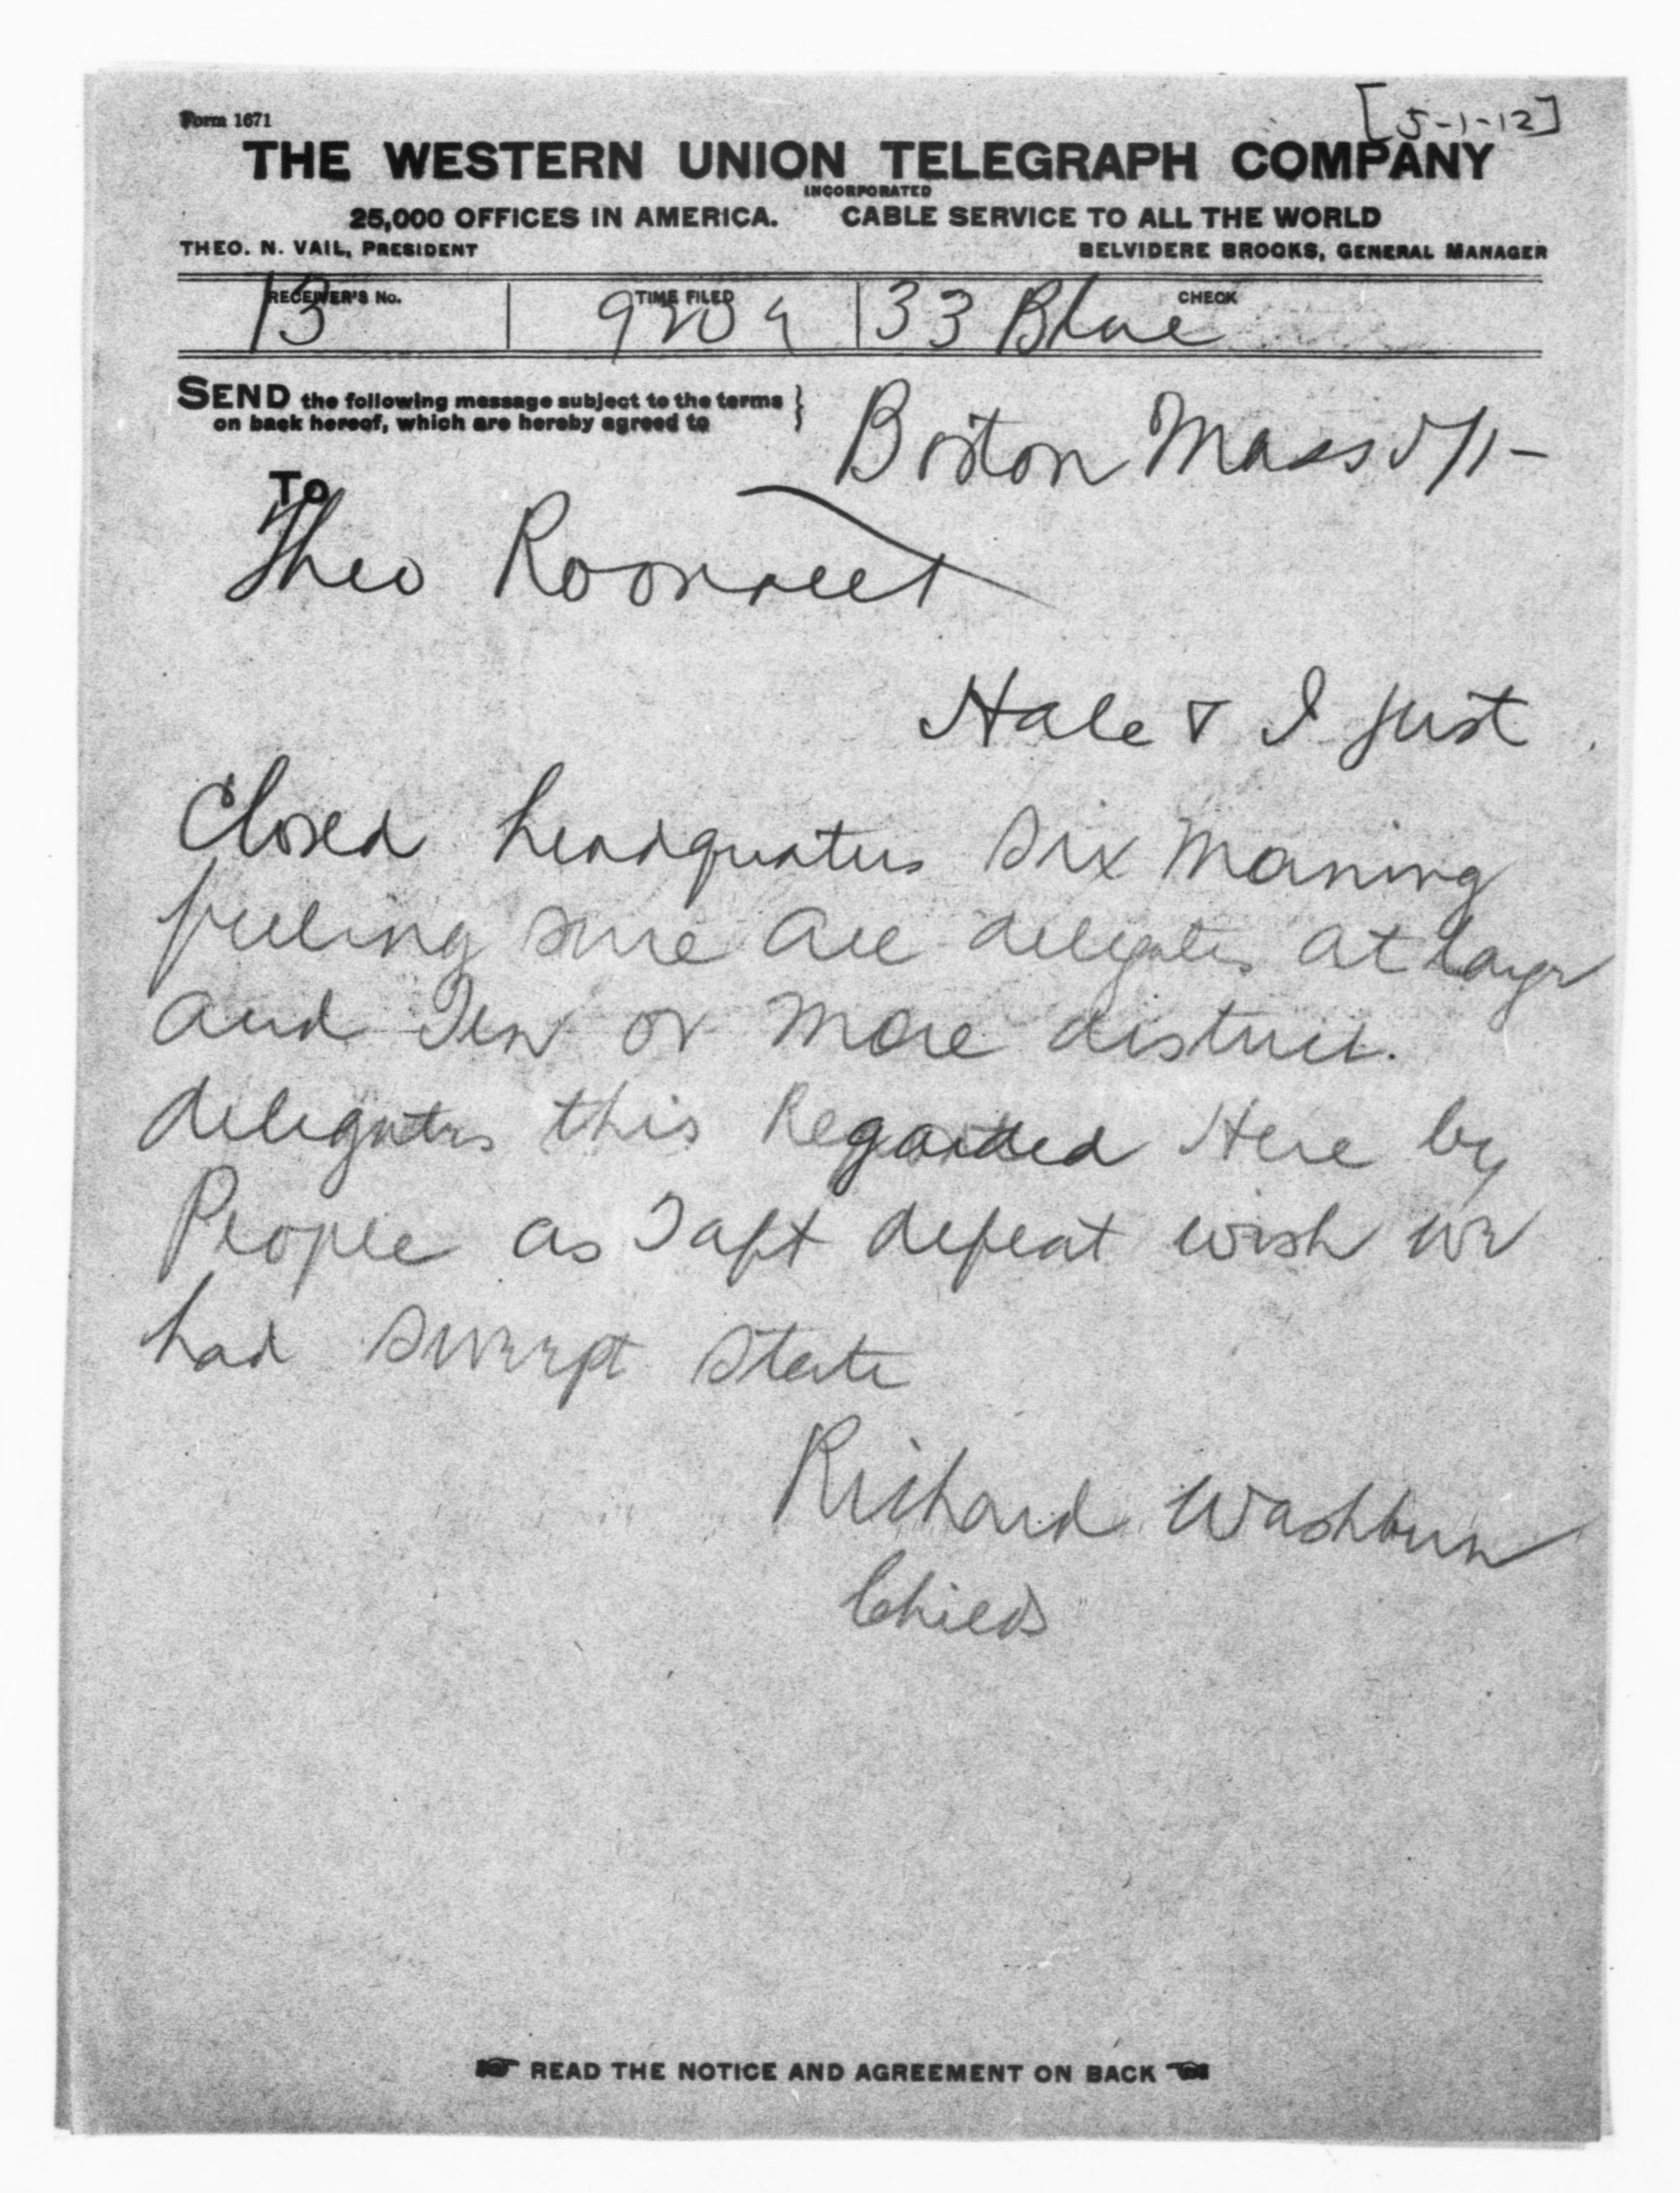 [5-1-12]
Form 1671
THE WESTERN UNION TELEGRAPH COMPANY
INCORPORATED
25,000 OFFICES IN AMERICA. CABLE SERVICE TO ALL THE WORLD
THEO. N. VAIL, PRESIDENT BELVIDERE BROOKS, GENERAL MANAGER
RECEIVER'S No. TIME FILED CHECK
13 920a 33 Blue
SEND the following message subject to the terms
on back hereof, which are hereby agreed to
Boston Mass 5/1-
To
Theo Roosevelt
Hale & I just
Closed headquarters six morning
feeling sure all delegates at large
and Ten or more district
delegates this Regarded Here by
People as Taft defeat wish we
had swept state
Richard Washburn
Child
READ THE NOTICE AND AGREEMENT ON BACK